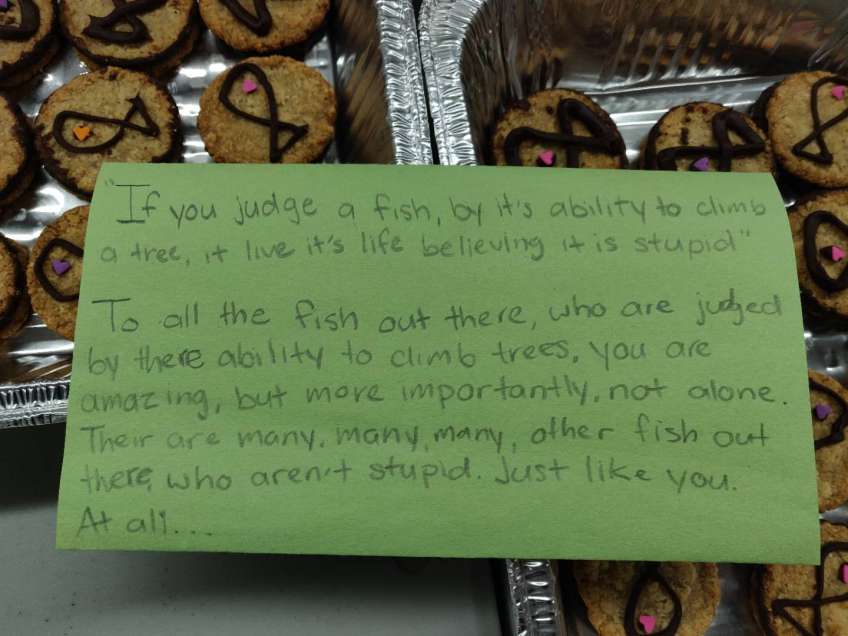 "If you judge a fish, by it's ability to climb
a tree, it live it's life believing it is stupid"
To all the fish out there, who are judged
by there ability to climb trees, you are
amazing, but more importantly, not alone.
Their are many, many, many, other fish out
there, who aren't stupid. Just like you.
At all...